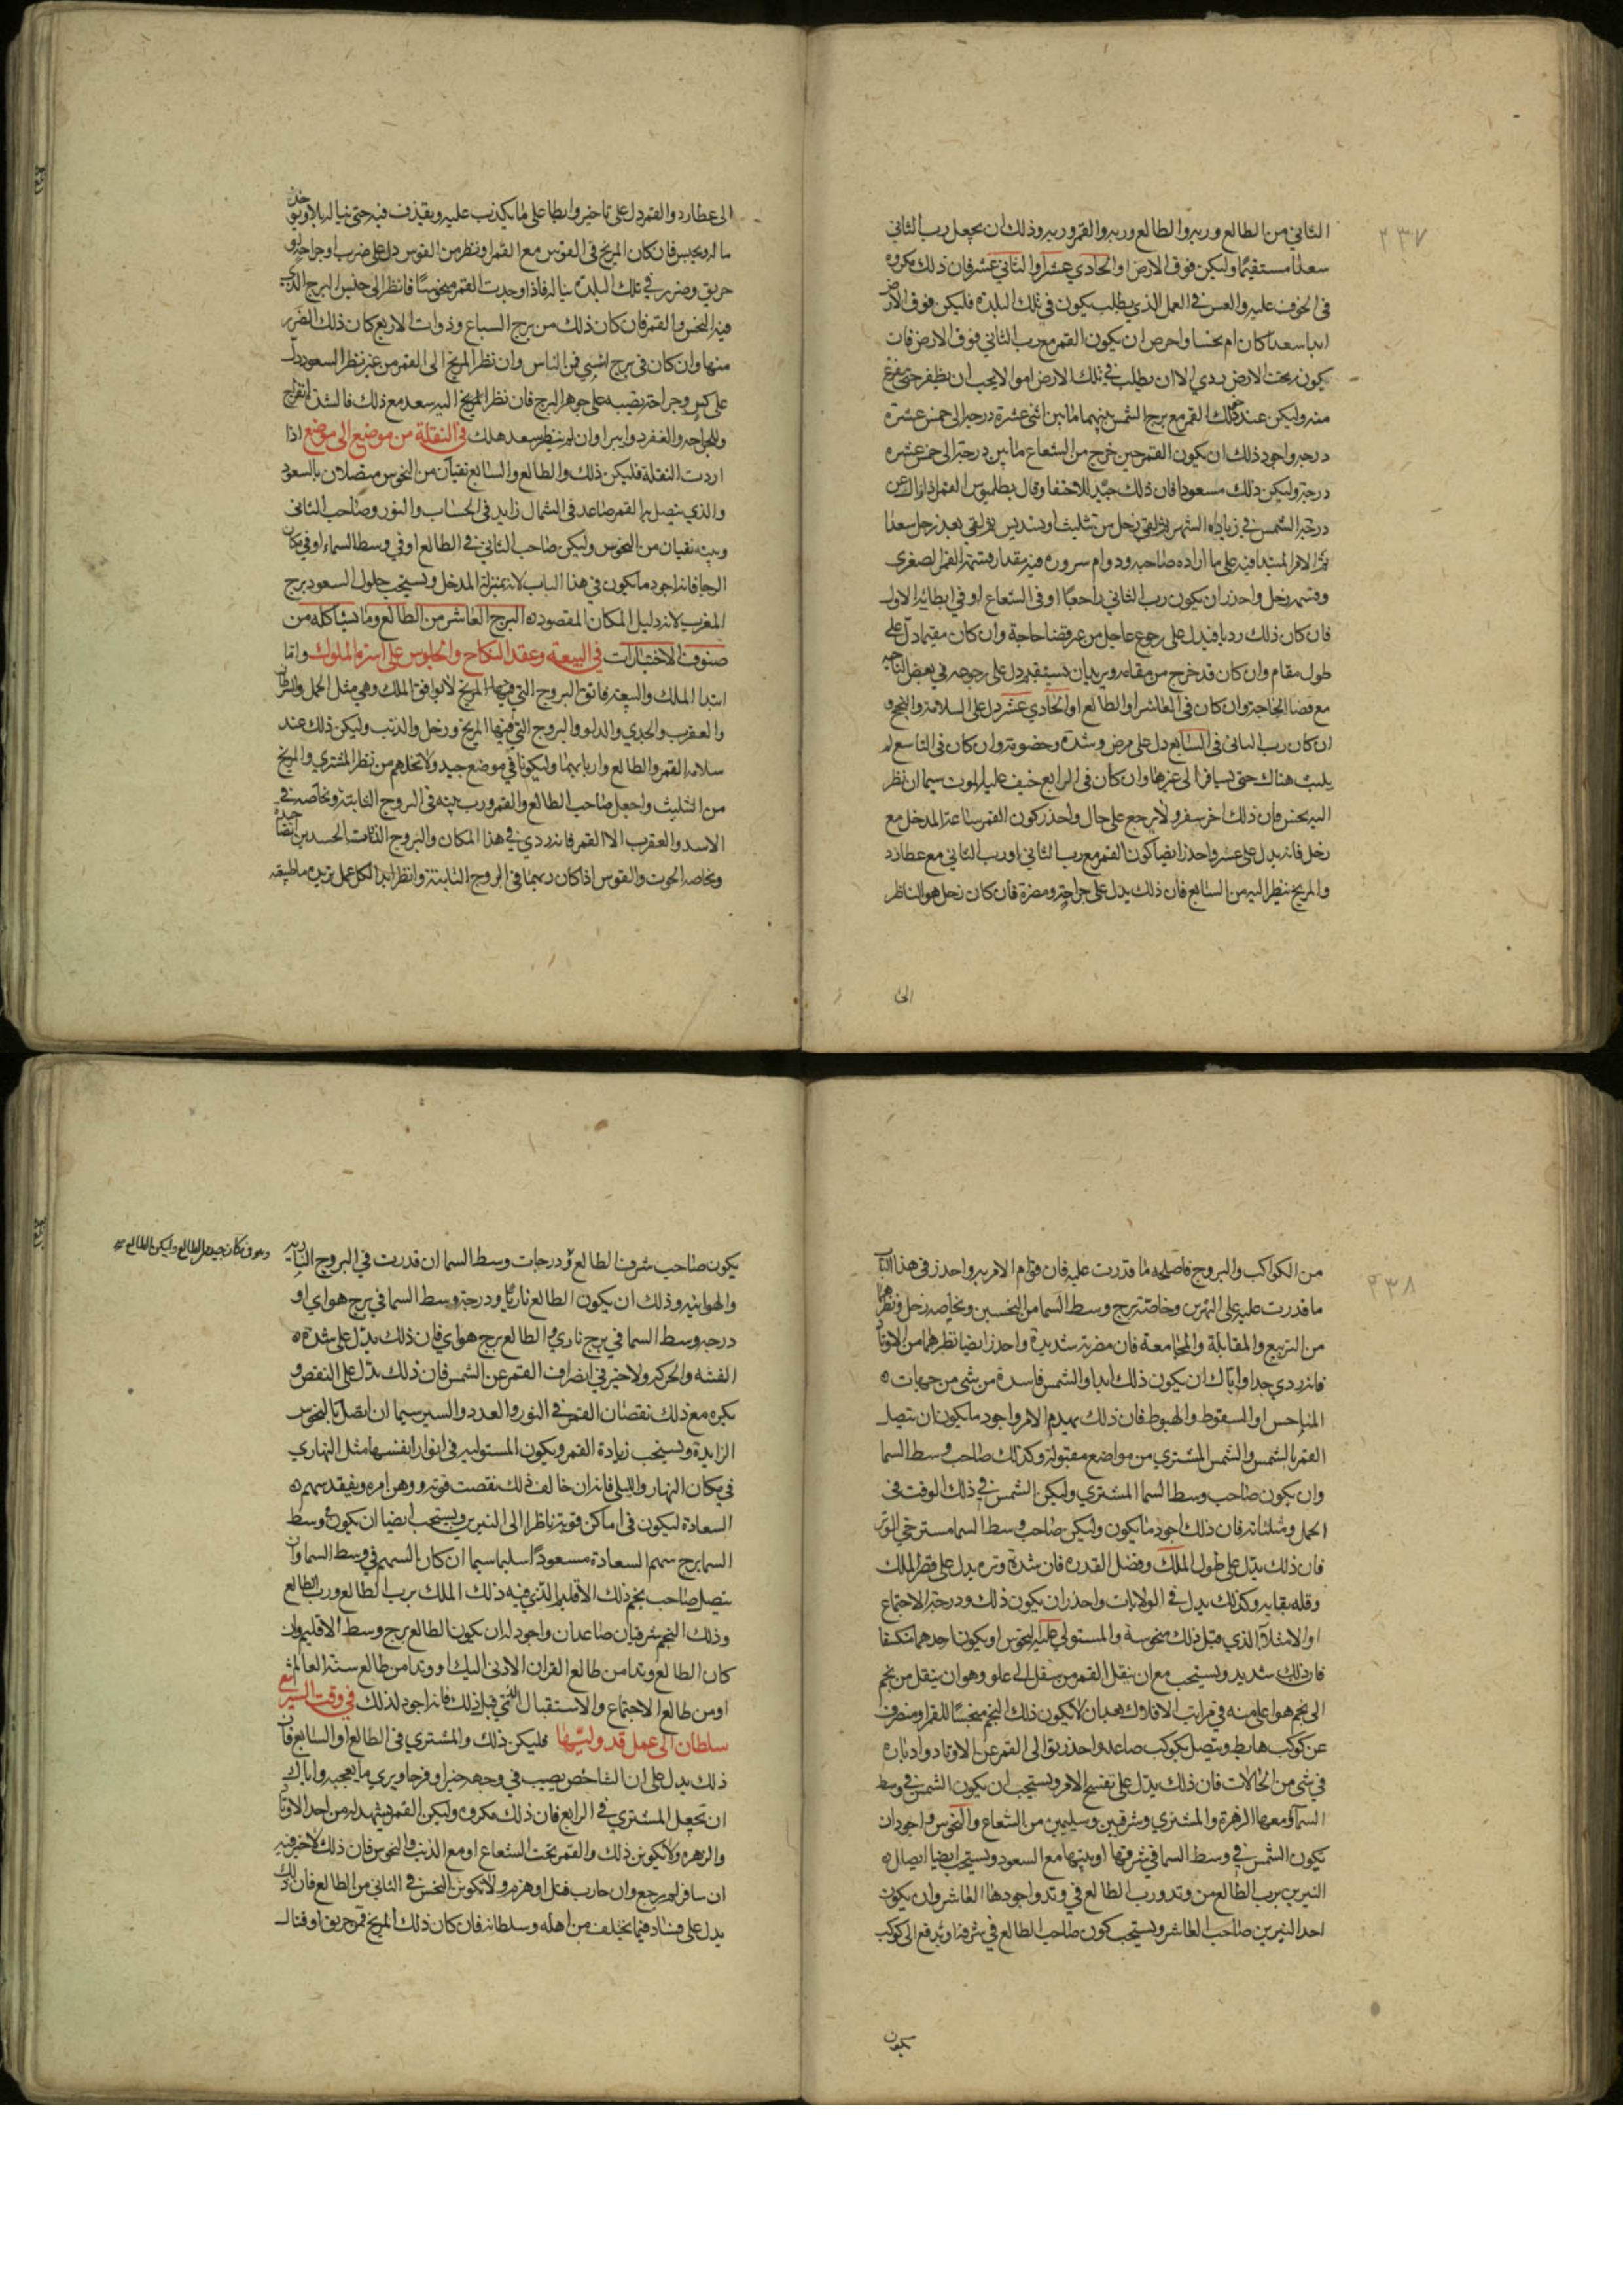 ٢٣٧
الثاني من الطالع وربه والطالع وربه والقمر وربه وذلك ان يجعل رب الثاني
سعدا مستقيما وليكن فوق الارض او الحادي عشر او الثاني عشر فان ذلك مكروه
في الخوف عليه والعسر في العمل الذي يطلب يكون في تلك البلدة فليكن فوق الارض
ابدا سعدا كان ام نحسا واحرص ان يكون القمر مع رب الثاني فوق الارض فان
كونه تحت الارض ردي الا ان يطلب في تلك الارض امرا لا يحب ان يظفر حتى يفرغ
منه وليكن عند ذلك القمر مع برج الشمس بينهما ما بين اثنى عشرة درجة الى خمس عشرة
درجة واجود ذلك ان يكون القمر حين خرج من الشعاع ما بين درجة الى خمس عشره
درجة وليكن ذلك مسعودا فان ذلك جيد للاختفا وقال بطلميوس القمر اذا زال عن
درجة الشمس في زيادة الشهر ثم لقي زحل من تثليث او تسديس ثم لقي بعد زحل سعدا
تم الامر المبتدا فيه على ما اراده صاحبه ودوام سروره فيه مقدار قسمة القمر الصغرى
وقسمة زحل واحذر ان يكون رب الثاني راجعا او في الشعاع او في ابطائه الاول
فان كان ذلك رديا فيدل على رجوع عاجل من غير قضا حاجة وان كان مقيما دل على
طول مقام وان كان قد خرج من مقامه ويريد ان يستقيم دل على رجوعه في بعض الناحيه
مع قضا الحاجة وان كان في العاشر او الطالع او الحادي عشر دل على السلامة والنجح و
ان كان رب الثاني في السابع دل على مرض وشدة وخصومة وان كان في التاسع لم
يلبث هناك حتى يسافر الى غيرها وان كان في الرابع خيف عليه الموت سيما ان نظر
اليه نحس فان ذلك اخر سفره ولا يرجع على حال واحذر كون القمر ساعة المدخل مع
زحل فانه يدل على عسر واحذر ايضا كون القمر مع رب الثاني او رب الثاني مع عطارد
والمريخ ينظر اليه من السابع فان ذلك يدل على جراحة ومضرة فان كان زحل هو الناظر
الى
الى عطارد والقمر دل على تاخير وابطا على ما يكذب عليه ويقذف فيه حتى يناله بلا ويوخذ
ماله ويحبس فان كان المريخ في القوس مع القمر او نظر من القوس دل على ضرب او جراحة او
حريق وضرر في تلك البلدة يناله فاذا وجدت القمر منحوسا فانظر الى جنس البرج الذي
فيه النحس والقمر فان كان ذلك من برج السباع وذوات الاربع كان ذلك الضرر
منها وان كان في برج انسي فمن الناس وان نظر المريخ الى القمر من غير نظر السعود دل
على كسر وجراحة تصيبه على جوهر البرج فان نظر المريخ اليه سعد مع ذلك فالشد انفراج
وللجراحه والعقر دوا وبرا وان لم ينظر سعد هلك في النقلة من موضع الى موضع اذا
اردت النقلة فليكن ذلك والطالع والسابع نقيان من النحوس متصلان بالسعود
والذي يتصل به القمر صاعد في الشمال زايد في الحساب والنور وصاحب الثاني
وبيته نقيان من النحوس وليكن صاحب الثاني في الطالع او في وسط السماء او في مكان
الرجا فانه اجود ما يكون في هذا الباب لانه بمنزلة المدخل ويستحب حلول السعود برج
المغرب لانه دليل المكان المقصود ه البرج العاشر من الطالع وما يشاكله من
صنوف الاختيارات في البيعة وعقد النكاح والجلوس على اسرة الملوك واما
ابتدا الملك والبيعة فاتق البروج التي فيها المريخ لا يوافق الملك وهي مثل الحمل والسرطان
والعقرب والجدي والدلو والبروج التي فيها المريخ وزحل والذنب وليكن ذلك عند
سلامة القمر والطالع واربابهما وليكونا في موضع جيد ولا تخلهم من نظر المشتري والمريخ
من التثليث واجعل صاحب الطالع والقمر ورب بيته في البروج الثابتة وبخاصه في
الاسد والعقرب الا القمر فانه ردي في هذا المكان والبروج الذوات الجسدين ايضا جيدة
وبخاصه الحوت والقوس اذا كان ربهما في البروج الثابتة وانظر ابدا لكل عمل تريده ما طبيعته
٢٣٨
من الكواكب والبروج فاصلحه ما قدرت عليه فان قوام الامر به واحذر في هذا الباب
ما قدرت عليه على النيرين وخاصة برج وسط السما من النحسين وبخاصه زحل ونظرهما
من التربيع والمقابلة والمجامعة فان مضرته شديدة واحذر ايضا نظرهما من الاوتاد
فانه ردي جدا واياك ان يكون ذلك ابدا والشمس فاسدة من شي من جهات ه
المناحس او السقوط والهبوط فان ذلك يهدم الامر واجود ما يكون ان يتصل
القمر بالشمس والشمس بالمشتري من مواضع مقبولة وكذلك صاحب وسط السما
وان يكون صاحب وسط السما المشتري وليكن الشمس في ذلك الوقت في
الحمل ومثلثاته فان ذلك اجود ما يكون وليكن صاحب وسط السما مسترخي الوتر
فان ذلك يدل على طول الملك وفضل القدره فان شدة وتره يدل على قصر الملك
وقله بقايه وكذلك يدل في الولايات واحذر ان يكون ذلك ودرجة الاجتماع
او الامتلا الذي قبل ذلك منحوسة والمستولي عليه النحوس او يكون احدهما منكسفا
فان ذلك شديد ويستحب مع ان ينقل القمر من سفل الى علو وهو ان ينقل من نجم
الى نجم هو اعلى منه في مراتب الافلاك بعد ان لا يكون ذلك النجم منحسا للقمر او منصرف
عن كوكب هابط ويتصل بكوكب صاعد واحذر توالي القمر عن الاوتاد وادباره
في شي من الحالات فان ذلك يدل على تفسخ الامر ويستحب ان يكون الشمس في وسط
السما ومعها الزهرة والمشتري وشرقيين وسليمين من الشعاع والنحوس واجود ان
تكون الشمس في وسط السما في شرفها او بيتها مع السعود ويستحب ايضا اتصال ه
النيرين برب الطالع من وتد ورب الطالع في وتد واجودها العاشر وان يكون
احد النيرين صاحب العاشر ويستحب كون صاحب الطالع في شرفه او يدفع الى كوكب
يكون
يكون صاحب شرف الطالع ودرجات وسط السما ان قدرت في البروج الناريه
والهوائيه وذلك ان يكون الطالع ناريا ودرجة وسط السما في برج هواي او
درجه وسط السما في برج ناري والطالع برج هواي فان ذلك يدل على شدة ه
الفشه والحركه ولا خير في انصراف القمر عن الشمس فان ذلك يدل على النقص و
يكره مع ذلك نقصان القمر في النور والعدد والسير سيما ان اتصل بالنحوس
الزايدة ويستحب زيادة القمر ويكون المستوليه في انوار انفسها مثل النهاري
في مكان النهار والليلي فانه ان خالف ذلك نقصت قوته ووهن امره ويفقد سهم ه
السعادة ليكون في اماكن قوية ناظرا الى النيرين ويستحب ايضا ان يكون وسط
السما برج سهم السعادة مسعودا سليما سيما ان كان السهم في وسط السما وان
يتصل صاحب نجم ذلك الاقليم الذي فيه ذلك الملك برب الطالع ورب الطالع
وذلك النجم شرقيان صاعدان واجود له ان يكون الطالع برج وسط الاقليم وان
كان الطالع وتدا من طالع القران الادنى اليك او وتدا من طالع سنة العالم
او من طالع الاجتماع والاستقبال الذي قبل ذلك فانه اجود لذلك في وقت السير مع
سلطان الى عمل قد وليتها فليكن ذلك والمشتري في الطالع او السابع فان
ذلك يدل على ان الشاخص يصيب في وجهه خيرا وفرحا ويرى ما يعجبه واياك
ان تجعل المشتري في الرابع فان ذلك مكروه وليكن القمر يشهد له من احد الاوتاد
والزهره ولا يكونن ذلك والقمر تحت الشعاع او مع الذنب والنحوس فان ذلك لا خير فيه
ان سافر لم يرجع وان حارب قتل او هزم ولا يكونن النحس في الثاني من الطالع فان ذلك
يدل على فساد فيما يخلف من اهله وسلطانه فان كان ذلك المريخ فحريق او قتال